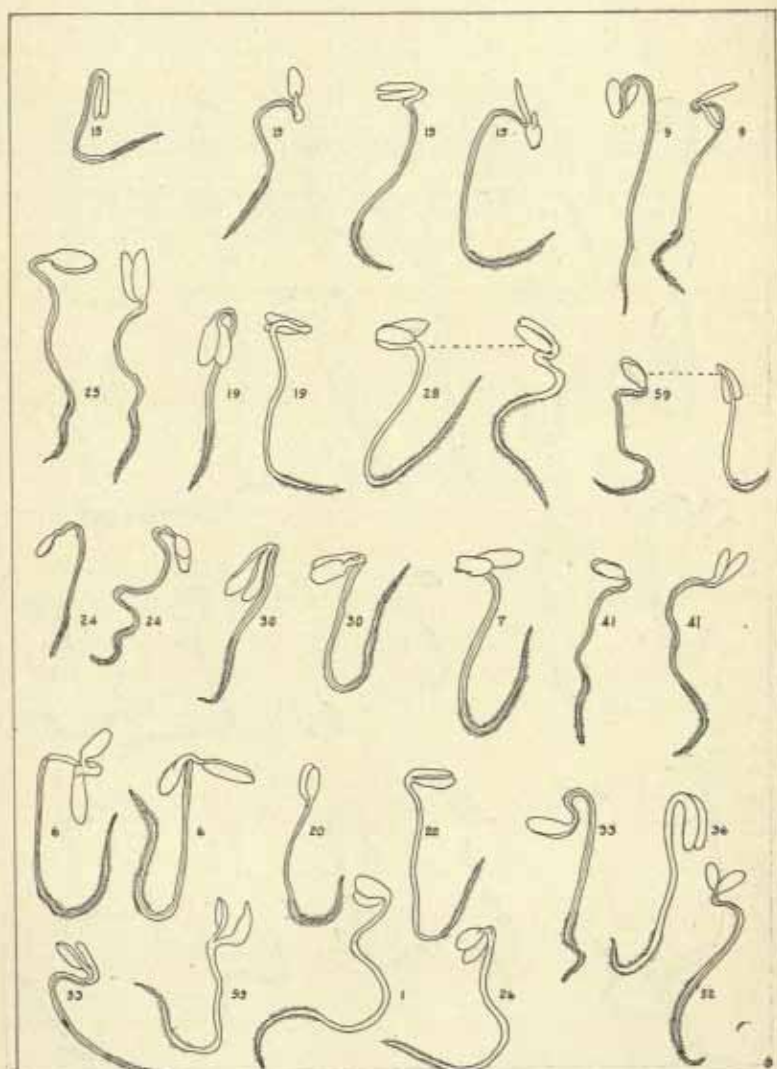 15 15 15 15 9 9
25 19 19 28 59
24 24 30 30 7 41 41
6 6 20 22 33 36
53 53 1 26 52